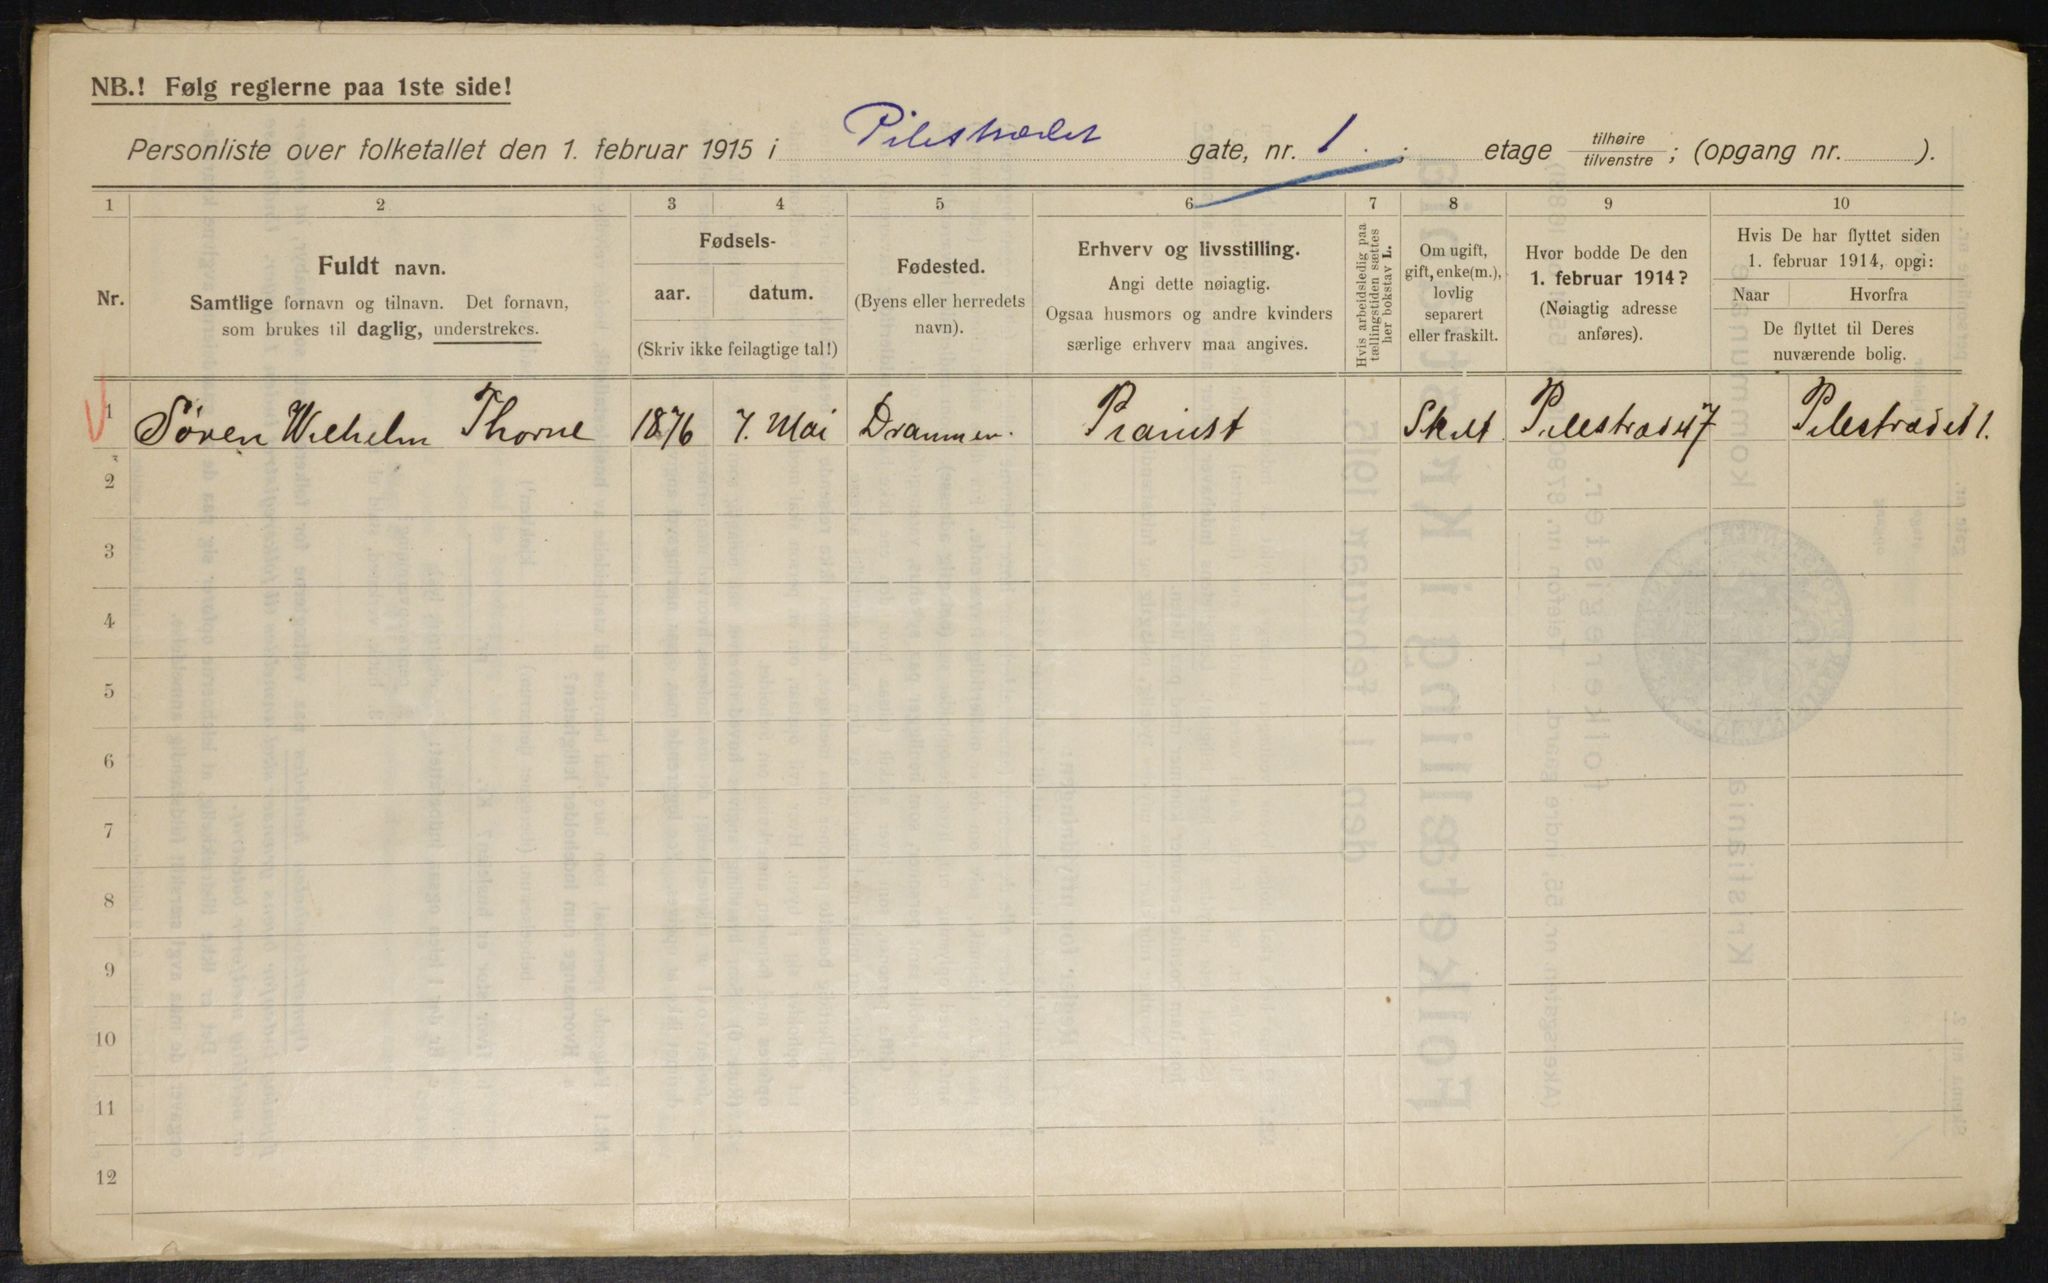 NB.! Følg reglerne paa 1ste side!
Personliste over folketallet den 1. februar 1915 i Pilestrædet gate, nr. 1. ; etage tilhøire tilvenstre ; (opgang nr. ).
1 2 3 4 5 6 7 8 9 10
Nr.
Fuldt navn.
Samtlige fornavn og tilnavn. Det fornavn,
som brukes til daglig, understrekes.
Fødsels-
aar. datum.
(Skriv ikke feilagtige tal!)
Fødested.
(Byens eller herredets
navn).
Erhverv og livsstilling.
Angi dette nøiagtig.
Ogsaa husmors og andre kvinders
særlige erhverv maa angives.
Hvis arbeidsledig paa
tællingstiden sættes
her bokstav L.
Om ugift,
gift, enke(m.),
lovlig
separert
eller fraskilt.
Hvor bodde De den
1. februar 1914?
(Nøiagtig adresse
anføres).
Hvis De har flyttet siden
1. februar 1914, opgi:
Naar Hvorfra
De flyttet til Deres
nuværende bolig.
1 Søren Wilhelm Thorne 1876 7. Mai Drammen. Pianist Skilt Pilestræd 47 Pilestrædet 1.
2
3
4
5
6
7
8
9
10
11
12